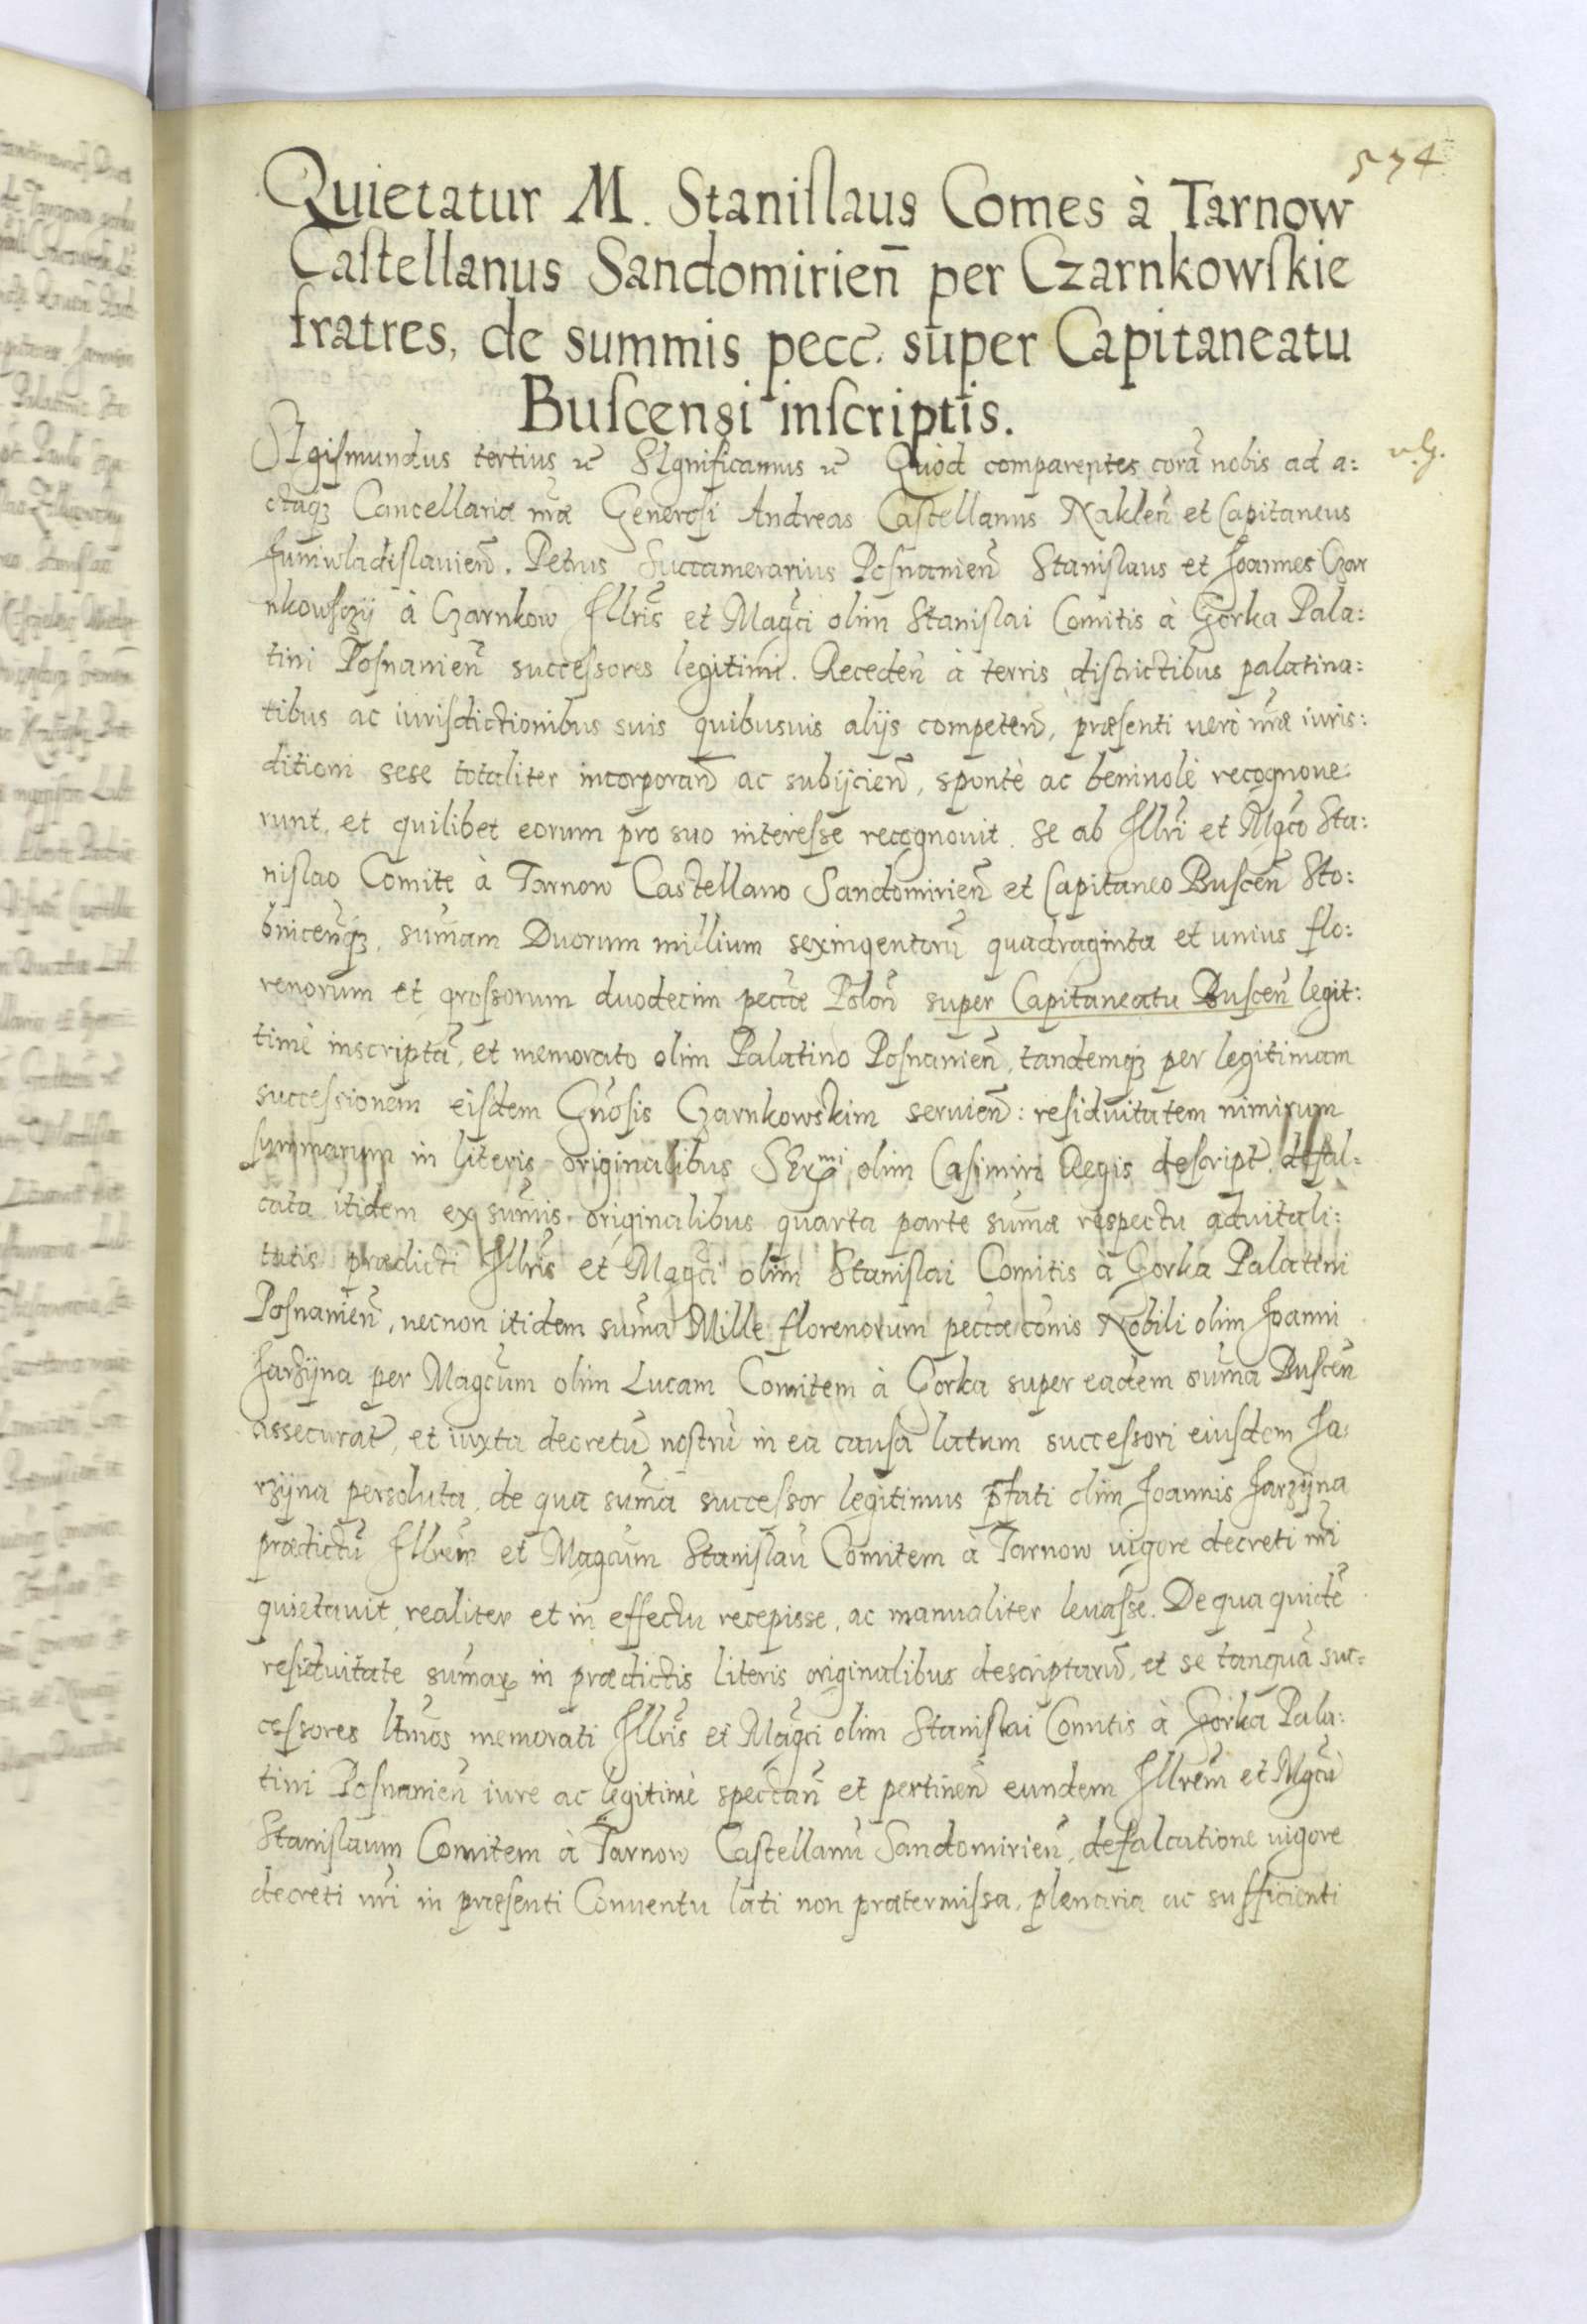 574
Quietatur M. Stanislaus Comes à Tarnow
Castellanus Sandomirien̄ per Czarnkowskie
fratres, de summis pecc. super Capitaneatu
Buscensi inscriptis.
SIgismundus tertius &c SIgnificamus &c Quòd comparentes corā nobis ad a:
ctaq3 Cancellariæ nr̄æ Generosi Andreas Castellanus Naklen̄ et Capitaneus
Iuniwladislauien̄. Petrus Succamerarius Posnanien̄ Stanislaus et Joannes Czar
nkowsczij à Czarnkow Illris̄ et Magci olim Stanislai Comitis à Gorka Pala:
tini Posnanien̄ successores legitimi. Receden̄ à terris districtibus palatina:
tibus ac iurisdictionibus suis quibusuis alijs competen̄, præsenti verò nr̄æ iuris:
ditioni sese totaliter incorporan̄ ac subijcien̄, spontè ac beniuolè recognoue:
runt, et quilibet eorum pro suo interesse recognouit. Se ab Illri et Mgco Sta:
nislao Comite à Tarnow Castellano Sandomirien̄ et Capitaneo Buscen̄ Sto:
bnicen̄q3, sum̄am Duorum millium sexingentorū quadraginta et unius flo:
renorum et grossorum duodecim pecciæ Polon̄ super Capitaneatu Buscen̄ legit:
timè inscriptā, et memorato olim Palatino Posnanien̄, tandemq3 per legitimam
successionem eisdem Gn̄osis Czarnkowskim seruien̄: residuitatem nimirum
summarum in literis originalibus SEr^mi olim Casimiri Regis descript. defal:
cata itidem ex sum̄is originalibus quarta parte sum̄æ respectu aduitali:
tatis prædicti Illris̄ et Magci olim Stanislai Comitis à Gorka Palatini
Posnanien̄, necnon itidem sum̄a Mille florenorum pecciæ cōnis Nobili olim Joanni
Jarzijna per Magcum olim Lucam Comitem à Gorka super eadem sum̄a Buscen̄
assecurat, et iuxta decretū nostrū in ea causa latum successori eiusdem Ja:
rzijna persoluta, de qua sum̄a successor legitimus p̄fati olim Joannis Jarzijna
prædictū Illrem̄ et Magcum Stanislaū Comitem à Tarnow uigore decreti nr̄i
quietauit, realiter et in effectu recepisse, ac manualiter leuasse. De qua quidē
residuitate sum̄ar in prædictis literis originalibus descriptarū, et se tanquā suc:
cessores ltmos memorati Illris̄ et Magci olim Stanislai Comitis à Gorka Pala:
tini Posnanien̄ iure ac legitimè spectan̄ et pertinen̄ eundem Illrem̄ et Mgcū
Stanislaum Comitem à Tarnow Castellanū Sandomirien̄, defalcatione uigore
decreti nr̄i in præsenti Conuentu lati non prætermissa, plenaria ac sufficienti